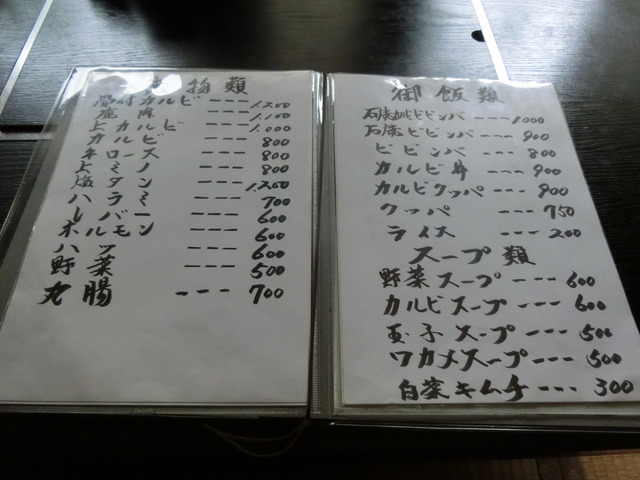 物類
骨付カルビ --- 1,200
肉 --- 1,100
上カルビ --- 1,000
カルビ --- 800
ロース --- 800
ミノ --- 800
上塩タン --- 1,200
ハラミ --- 700
レバー --- 600
ホルモン --- 600
ハツ --- 600
野菜 --- 500
丸腸 --- 700
御飯類
石焼 ビビンバ --- 1000
石焼ビビンバ --- 900
ビビンバ --- 800
カルビ丼 --- 900
カルビクッパ --- 900
クッパ --- 750
ライス --- 200
スープ類
野菜スープ --- 600
カルビスープ --- 600
玉子スープ --- 500
ワカメスープ --- 500
白菜キムチ --- 300